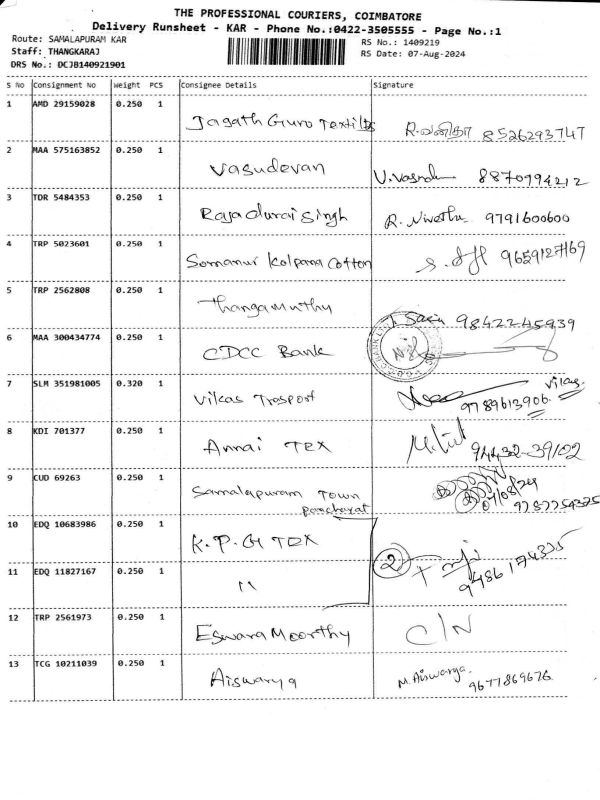 THE PROFESSIONAL COURIERS, COIMBATORE
Delivery Runsheet - KAR - Phone No.:0422-3505555 - Page No.:1
Route: SAMALAPURAM KAR
RS No.: 1409219
Staff: THANGKARAJ
RS Date: 07-Aug-2024
DRS No.: DCJB140921901
S No Consignment No Weight PCS Consignee Details Signature
1 AMD 29159028 0.250 1 Jagath Guru Textiles R.வனிதா 8526293747
2 MAA 575163852 0.250 1 Vasudevan 8870994212
3 TDR 5484353 0.250 1 Raja durai Singh R. Nivetha 9791600600
4 TRP 5023601 0.250 1 Somanur Kalpana Cotton 9659127169
5 TRP 2562808 0.250 1 Thangamuthy 9842245939
6 MAA 300434774 0.250 1 CDCC Bank
7 SLM 351981005 0.320 1 Vikas Trosport Vikas 9789613906
8 KDI 701377 0.250 1 Annai TEX 94432-39102
9 CUD 69263 0.250 1 Samalapuram Town Panchayat 07/08/24 9787754375
10 EDQ 10683986 0.250 1 K.P.G TEX 2 9486174375
11 EDQ 11827167 0.250 1 "
12 TRP 2561973 0.250 1 Eswara Moorthy C/N
13 TCG 10211039 0.250 1 Aiswarya M. Aiswarya. 9677869676